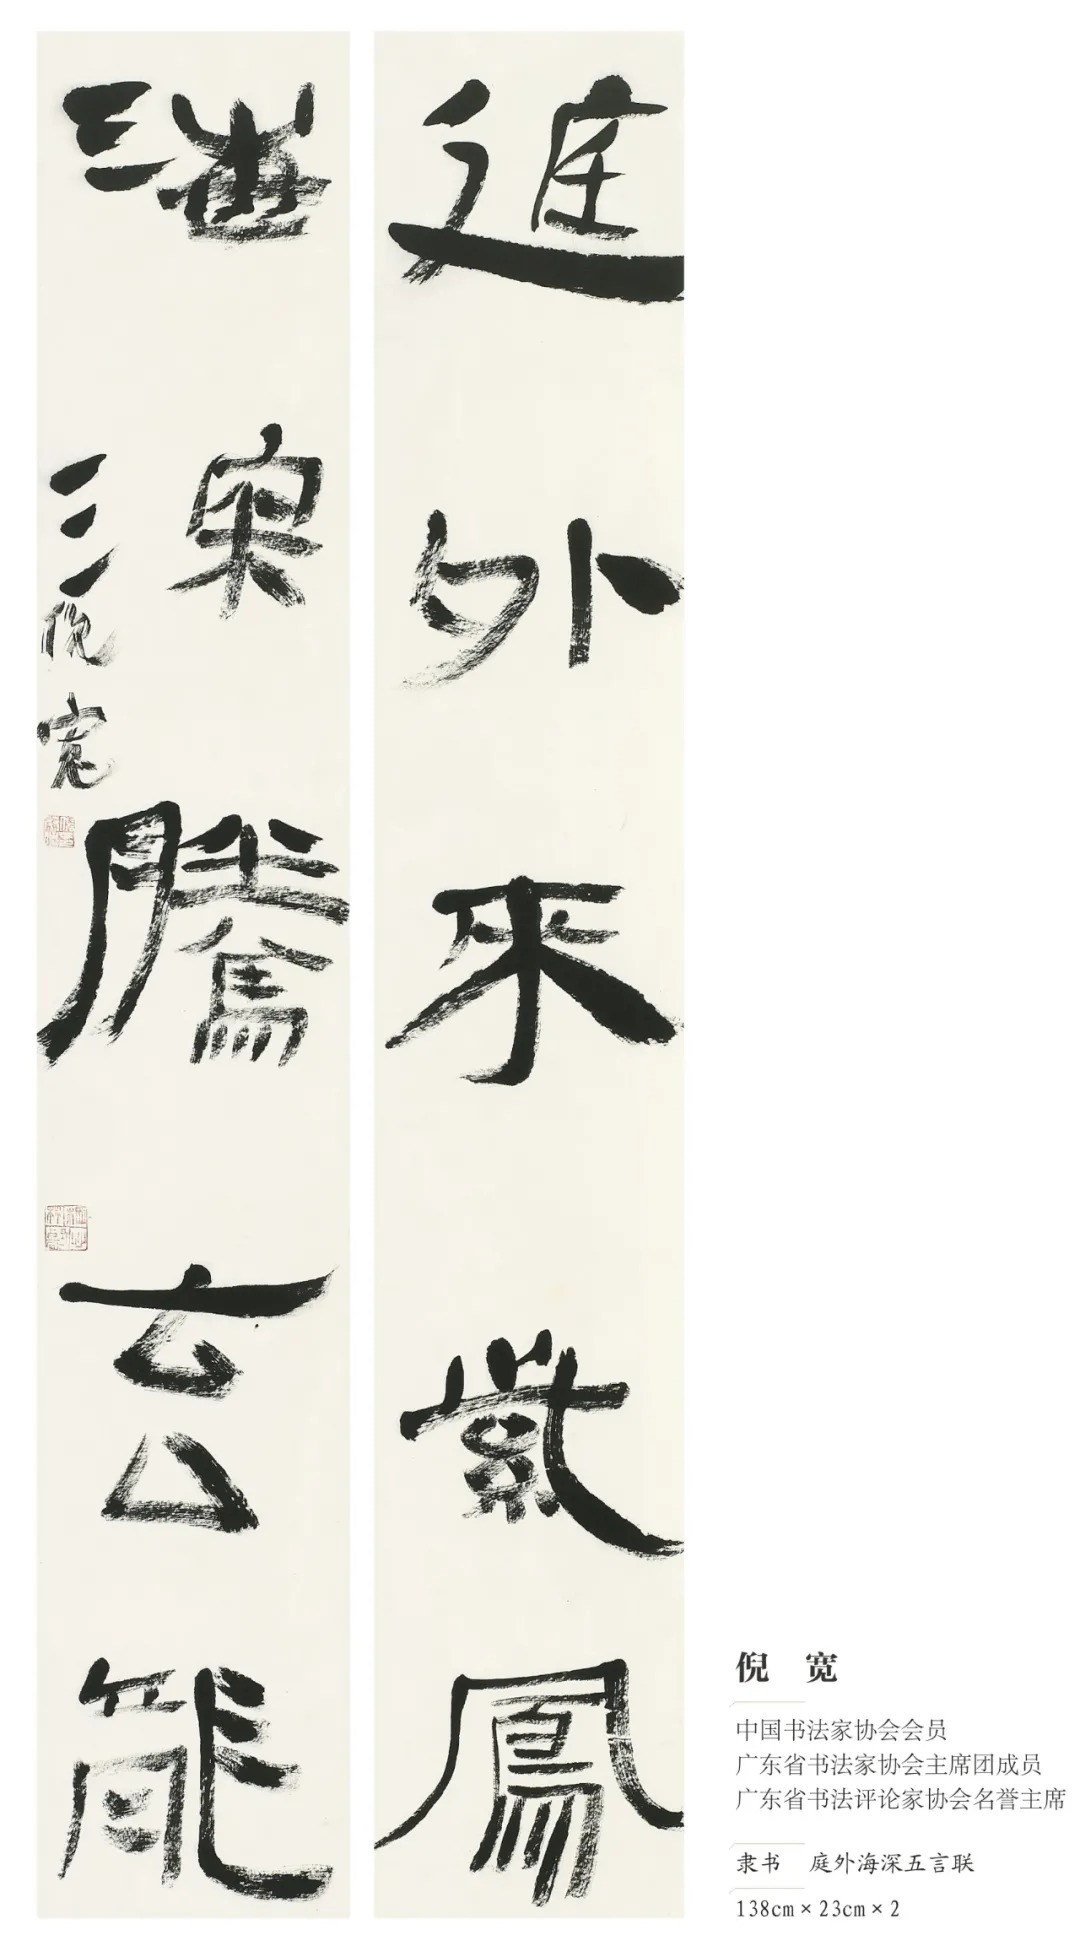 庭外來紫鳳
海深騰玄龍
倪寬
倪 宽
中国书法家协会会员
广东省书法家协会主席团成员
广东省书法评论家协会名誉主席
隶书 庭外海深五言联
138cm×23cm×2